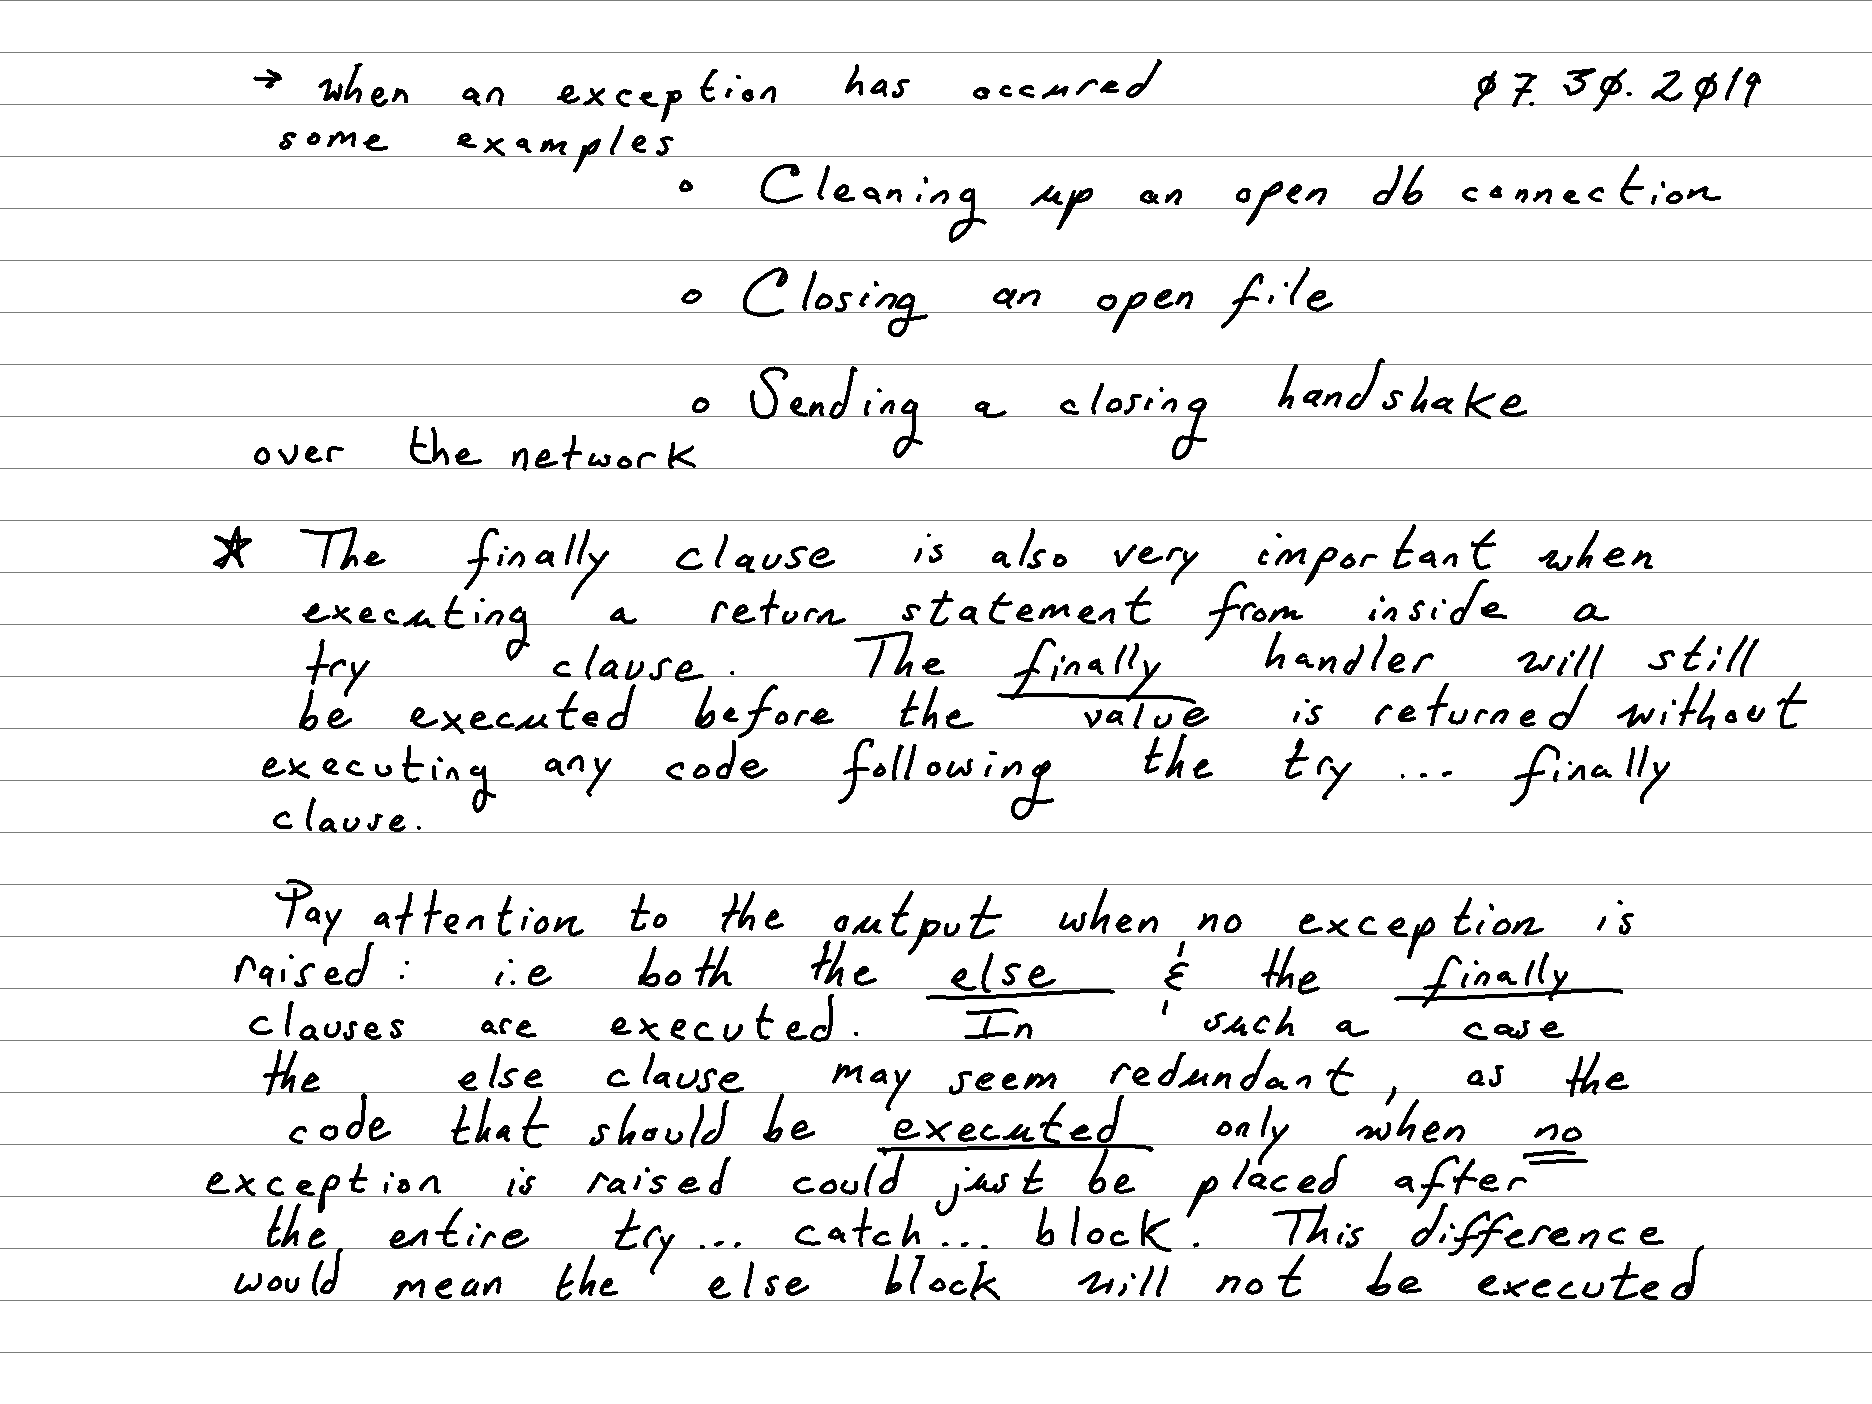 → when an exception has occured 07.30.2019
some examples
○ Cleaning up an open db connection
○ Closing an open file
○ Sending a closing handshake
over the network
☆ The finally clause is also very important when
executing a return statement from inside a
try clause. The finally handler will still
be executed before the value is returned without
executing any code following the try ... finally
clause.
Pay attention to the output when no exception is
raised : i.e both the else & the finally
clauses are executed. In such a case
the else clause may seem redundant, as the
code that should be executed only when no
exception is raised could just be placed after
the entire try... catch... block. This difference
would mean the else block will not be executed